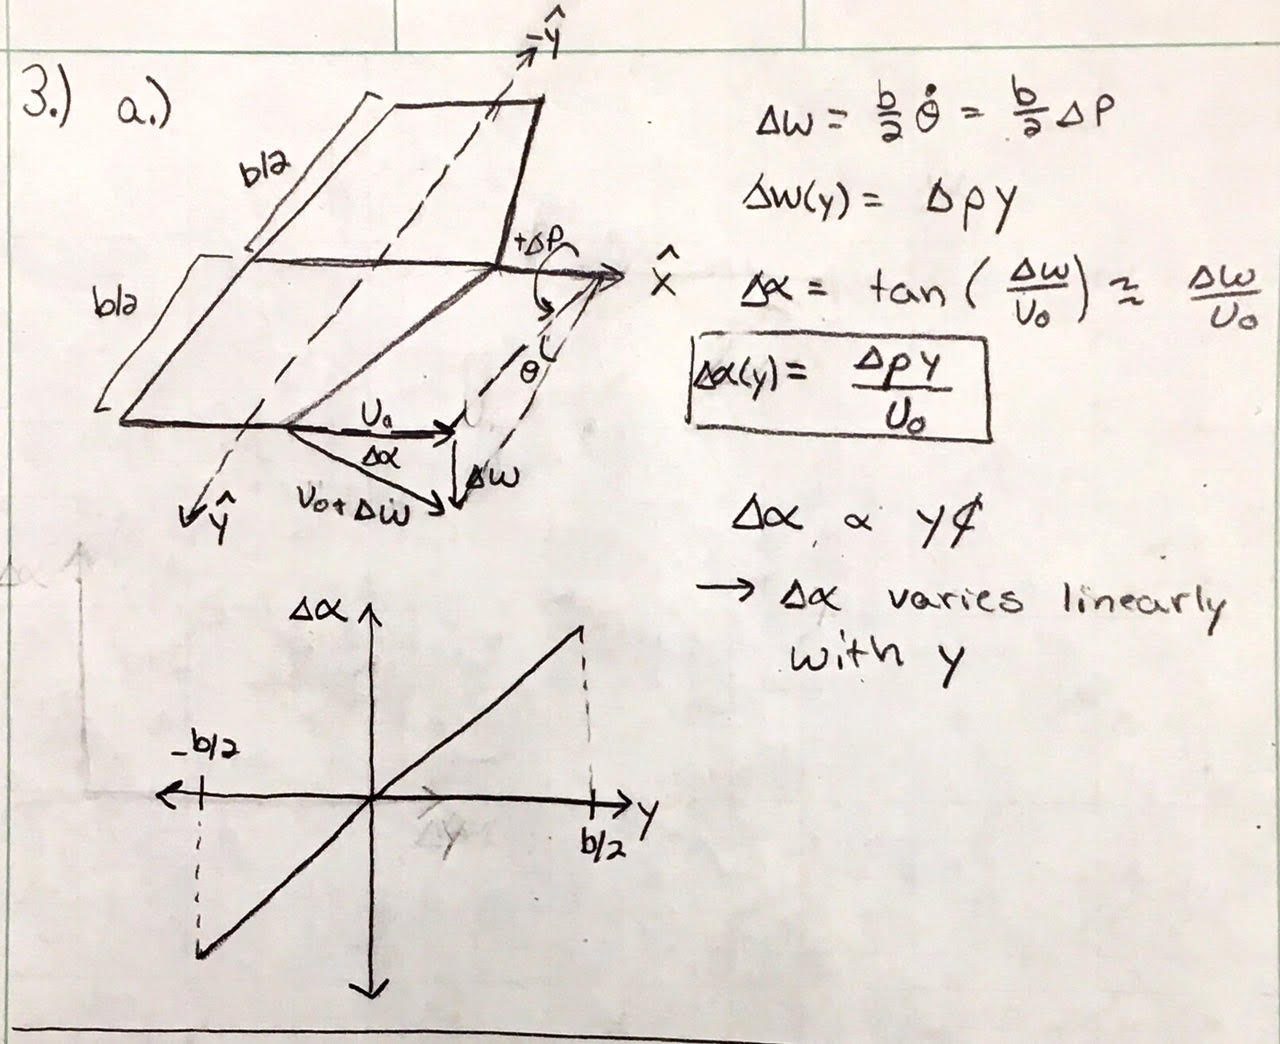 3.) a.)
-ŷ
b/2
b/2
+ΔP
x̂
θ
U₀
Δα
Δw
U₀+Δw
ŷ
Δw = b/2 θ̇ = b/2 ΔP
Δw(y) = Δpy
Δα = tan(Δw/U₀) ≈ Δw/U₀
Δα(y) = Δpy/U₀
Δα ∝ y
→ Δα varies linearly
with y
Δα
Δα
-b/2
y
Δy
b/2